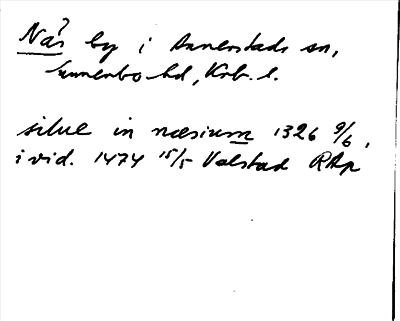 Nås? by i Annerstads sn,
Sunnerbo hd, Krb. l.
silue in næsium 1326 9/6,
i vid. 1474 15/5 Valstad RAp